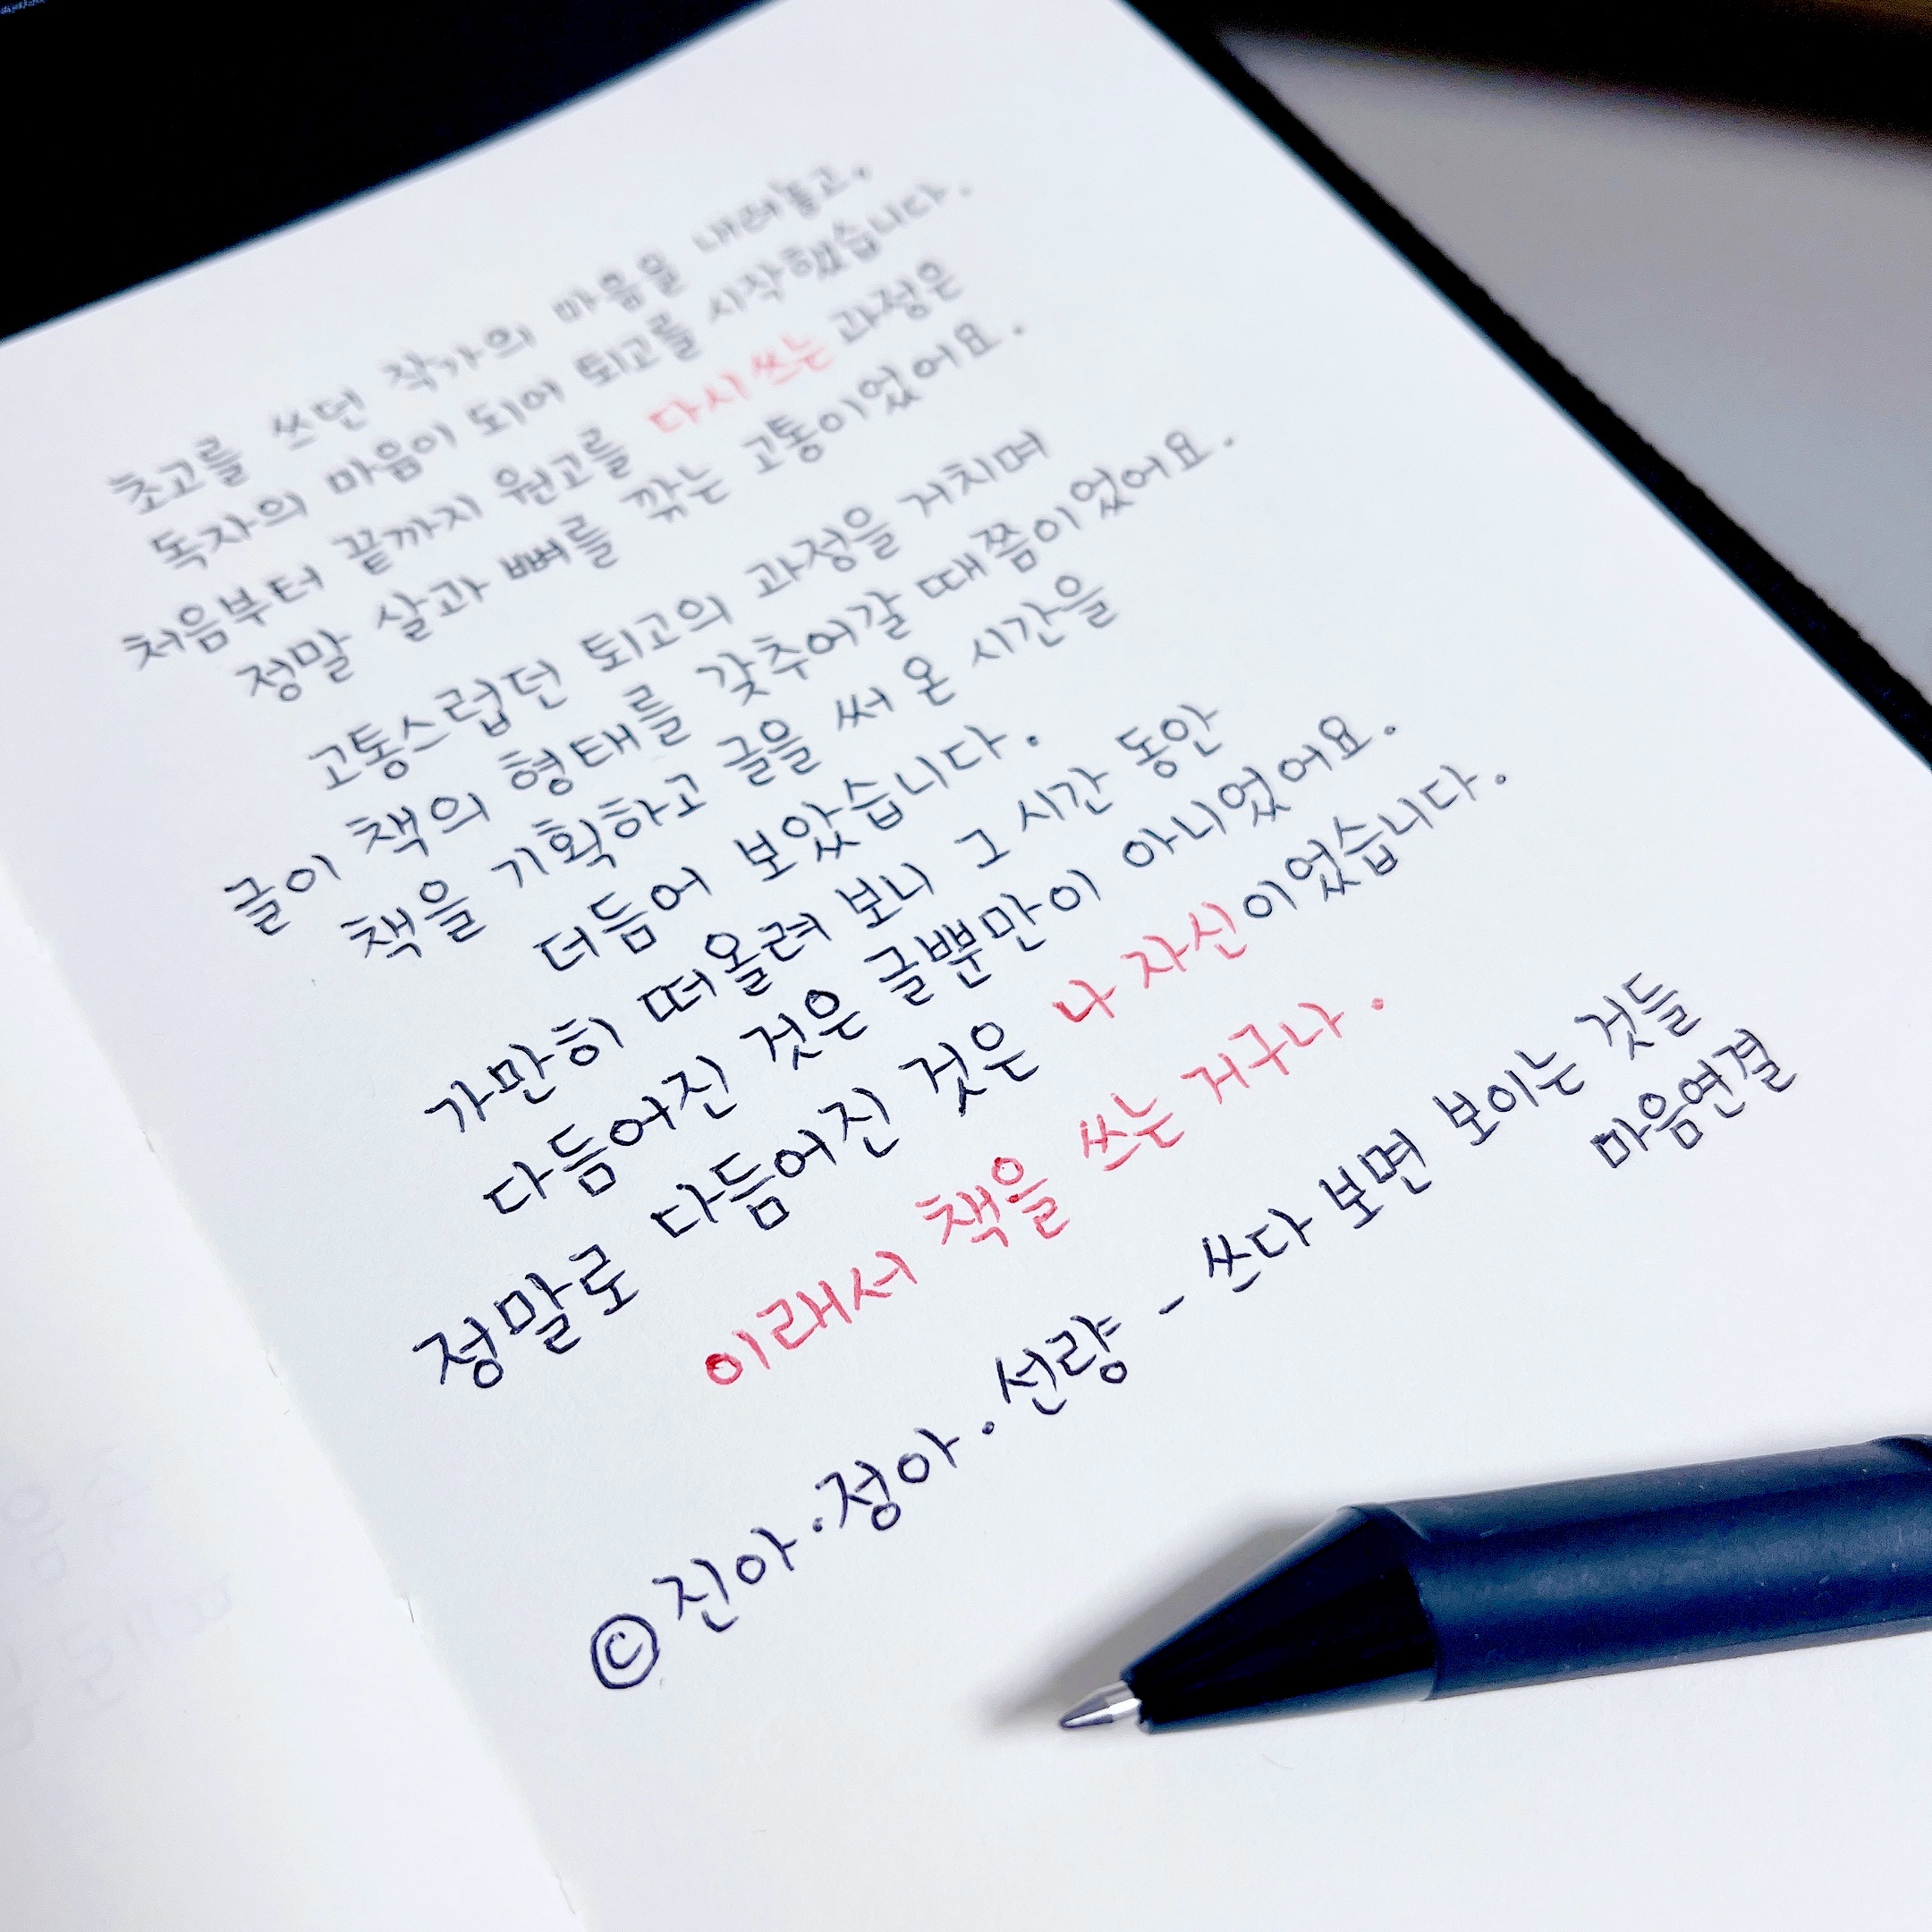 초고를 쓰던 작가의 마음을 내려놓고,
독자의 마음이 되어 퇴고를 시작했습니다.
처음부터 끝까지 원고를 다시 쓰는 과정은
정말 살과 뼈를 깎는 고통이었어요.
고통스럽던 퇴고의 과정을 거치며
글이 책의 형태를 갖추어갈 때쯤이었어요.
책을 기획하고 글을 써 온 시간을
더듬어 보았습니다.
가만히 떠올려 보니 그 시간 동안
다듬어진 것은 글뿐만이 아니었어요.
정말로 다듬어진 것은 나 자신이었습니다.
이래서 책을 쓰는 거구나.
ⓒ진아·정아·선량 - 쓰다 보면 보이는 것들
마음연결